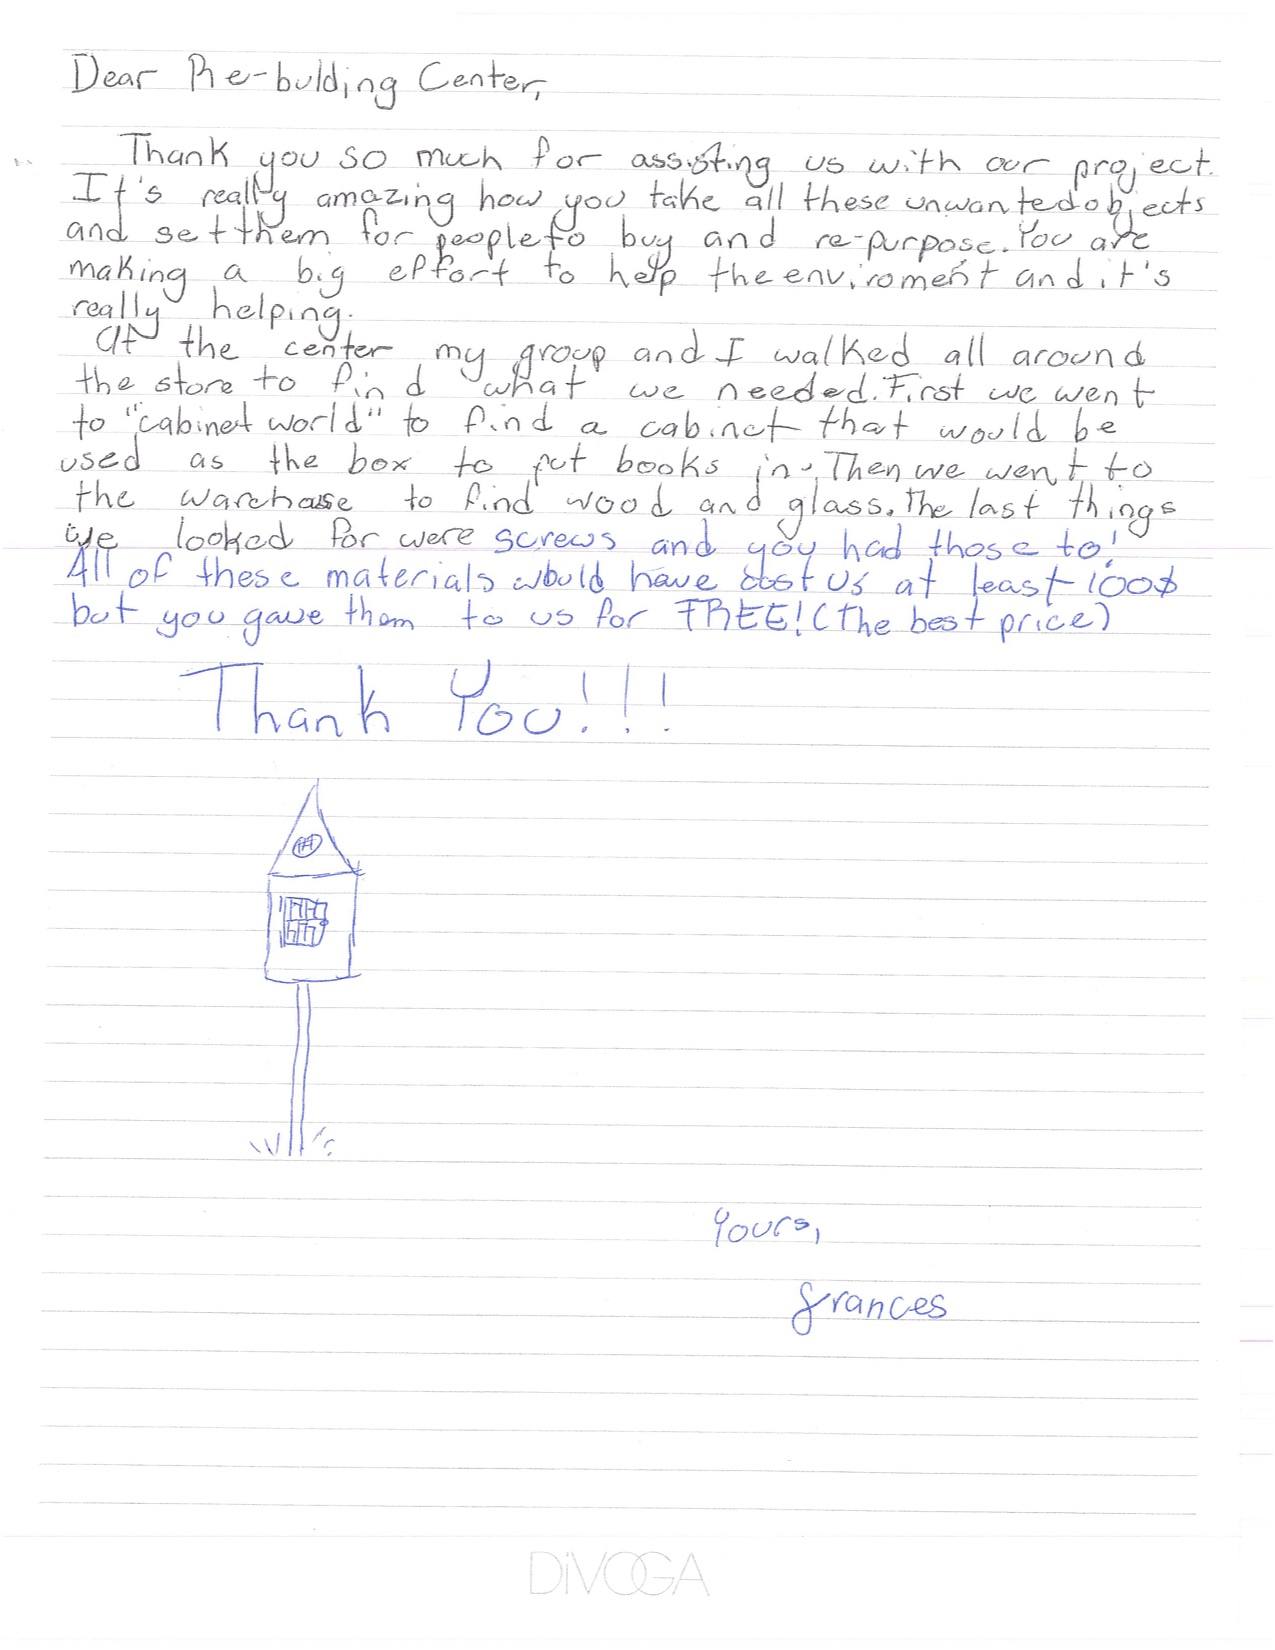 Dear Re-bulding Center,
Thank you so much for assisting us with our project.
It's really amazing how you take all these unwanted objects
and set them for people to buy and re-purpose. You are
making a big effort to help the enviroment and it's
really helping.
At the center my group and I walked all around
the store to find what we needed. First we went
to "cabinet world" to find a cabinet that would be
used as the box to put books in. Then we went to
the warehouse to find wood and glass. The last things
we looked for were screws and you had those to!
All of these materials would have cost us at least 100$
but you gave them to us for FREE! (The best price)
Thank You!!!
Yours,
Frances
DiVOGA